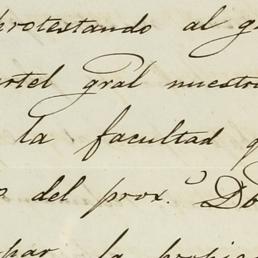 protestando al g
artel gral nuestr
la facultad q
o del prox.º Do
par la propie